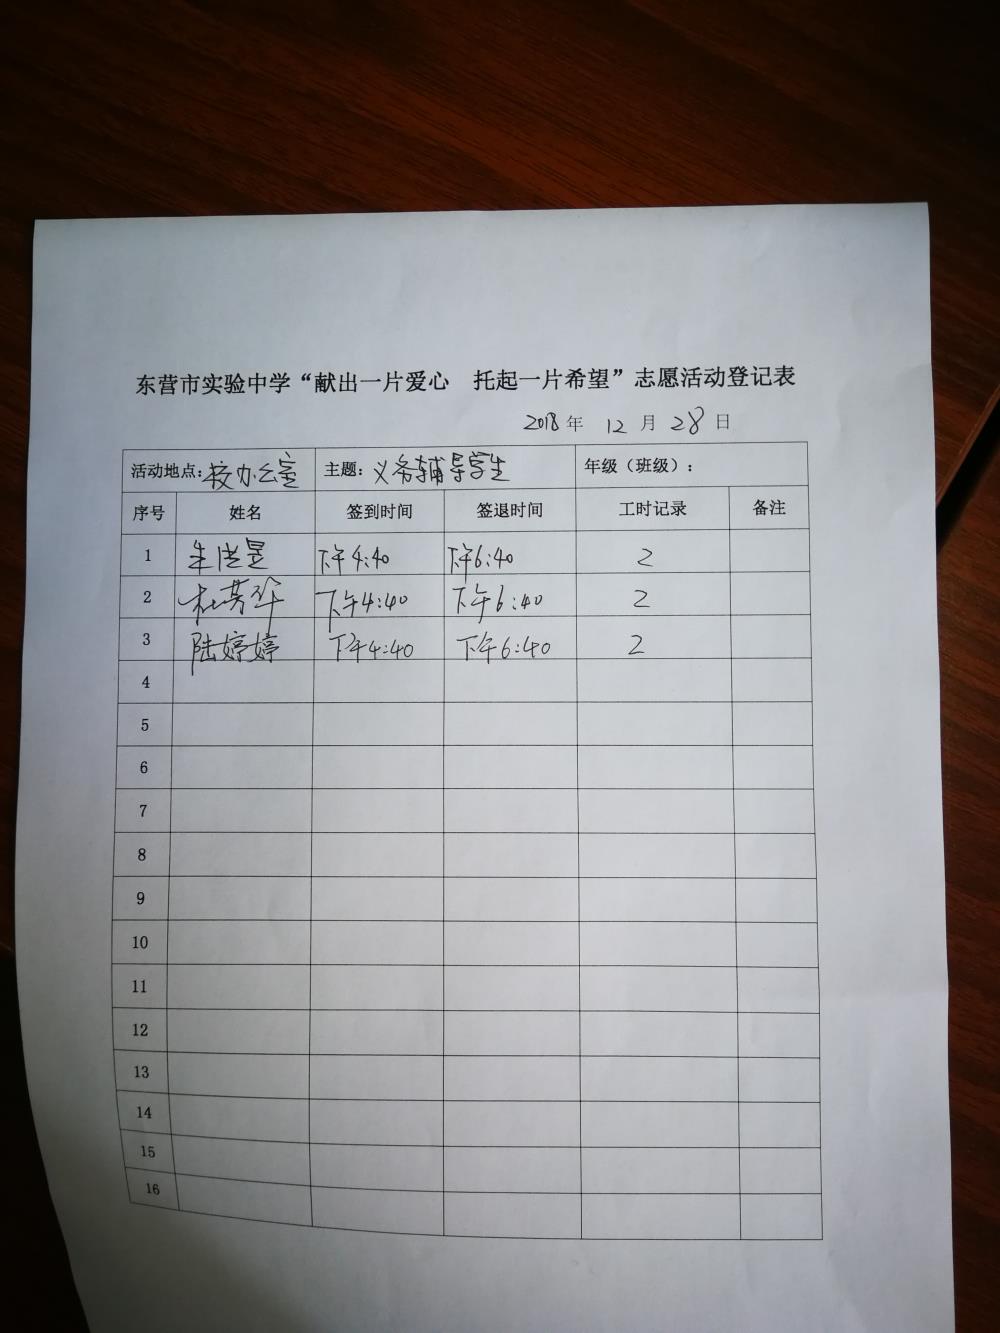 东营市实验中学“献出一片爱心 托起一片希望”志愿活动登记表
2018年 12月28日
活动地点:校办公室 主题:义务辅导学生 年级（班级）:
序号 姓名 签到时间 签退时间 工时记录 备注
1 下午4:40 下午6:40 2
2 杜芳华 下午4:40 下午6:40 2
3 陆婷婷 下午4:40 下午6:40 2
4
5
6
7
8
9
10
11
12
13
14
15
16